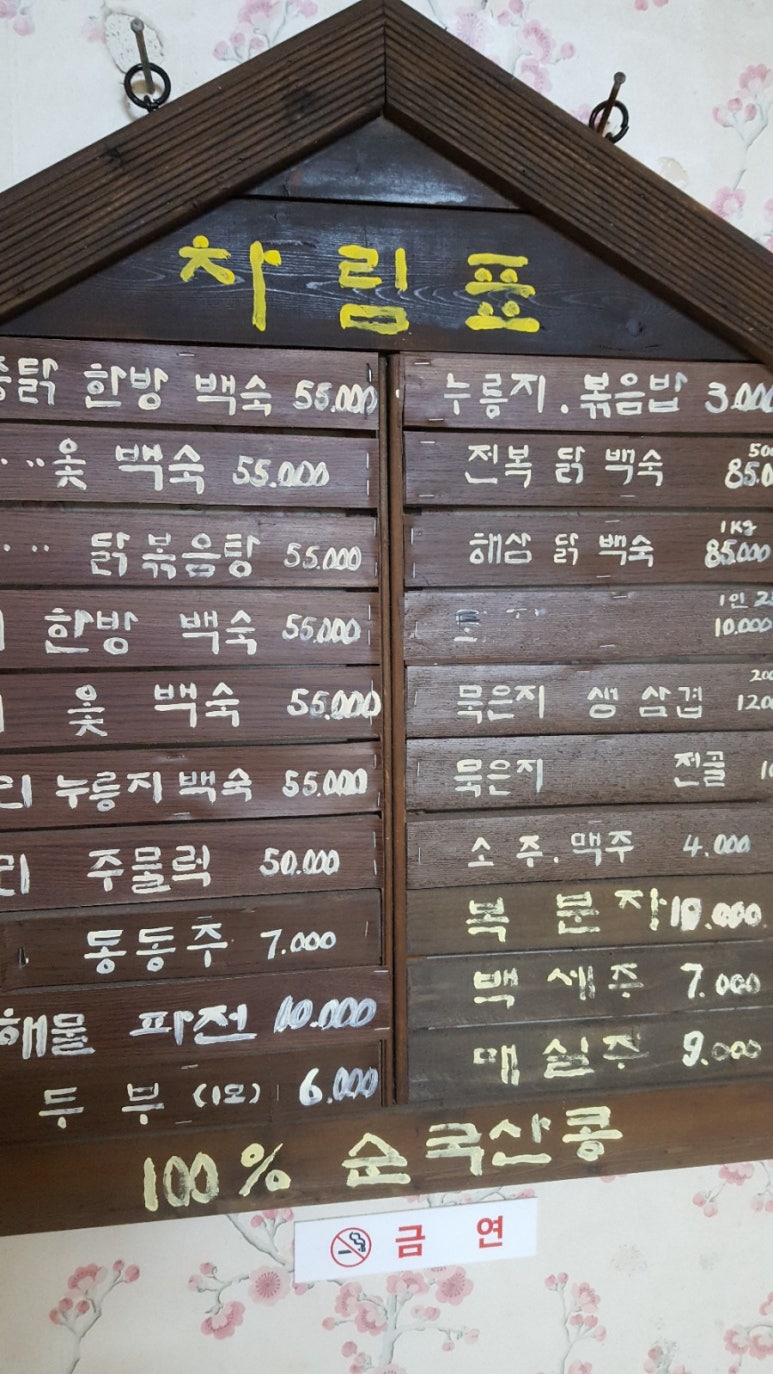 차림표
한방 백숙 55.000
옻 백숙 55.000
닭볶음탕 55.000
한방 백숙 55.000
옻 백숙 55.000
리 누룽지백숙 55.000
리 주물럭 50.000
동동주 7.000
해물 파전 10.000
두부 (1모) 6.000
누룽지.볶음밥 3.000
전복 닭 백숙
해삼 닭 백숙 1Kg 85.000
1인
10.000
묵은지 생 삼겹
묵은지 전골
소주.맥주 4.000
복분자 10.000
백세주 7.000
매실주 9.000
100% 순국산콩
금연